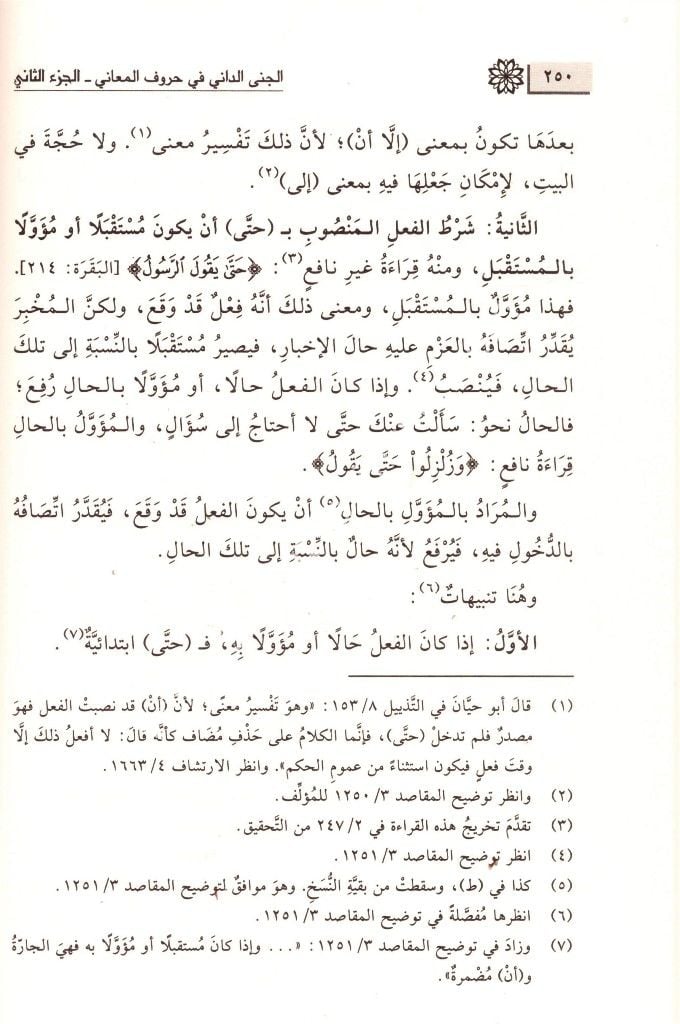 ٢٥٠
الجنى الداني في حروف المعاني - الجزء الثاني
بعدَهَا تكونُ بمعنى (إلَّا أنْ)؛ لأنَّ ذلكَ تَفْسِيرُ معنى(١). ولا حُجَّةَ في
البيتِ، لإِمْكَانِ جَعْلِهَا فيهِ بمعنى (إلى)(٢).
الثَّانيةُ: شَرْطُ الفعلِ المَنْصُوبِ بـ (حتَّى) أنْ يكونَ مُسْتَقْبَلًا أو مُؤَوَّلًا
بالـمُسْتَقْبَلِ، ومنْهُ قِرَاءَةُ غيرِ نافعٍ(٣): ﴿حَتَّىٰ يَقُولَ ٱلرَّسُولُ﴾ [البَقَرَة: ٢١٤].
فهذا مُؤَوَّلٌ بالـمُسْتَقْبَلِ، ومعنى ذلكَ أنَّهُ فِعْلٌ قَدْ وَقَعَ، ولكنَّ المُخْبِرَ
يُقَدِّرُ اتِّصَافَهُ بالعَزْمِ عليهِ حالَ الإخبارِ، فيصيرُ مُسْتَقْبَلًا بالنِّسْبَةِ إلى تلكَ
الحالِ، فَيُنْصَبُ(٤). وإذا كانَ الفعلُ حالًا، أو مُؤَوَّلًا بالحالِ رُفِعَ؛
فالحالُ نحوُ: سَأَلْتُ عنْكَ حتَّى لا أحتاجُ إلى سُؤَالٍ، والـمُؤَوَّلُ بالحالِ
قِرَاءَةُ نافعٍ: ﴿وَزُلْزِلُواْ حَتَّى يَقُولُ﴾.
والـمُرَادُ بالـمُؤَوَّلِ بالحالِ(٥) أنْ يكونَ الفعلُ قَدْ وَقَعَ، فَيُقَدَّرُ اتِّصَافُهُ
بالدُّخُولِ فيهِ، فَيُرْفَعُ لأنَّهُ حالٌ بالنِّسْبَةِ إلى تلكَ الحالِ.
وهُنَا تنبيهاتٌ(٦):
الأوَّلُ: إذا كانَ الفعلُ حَالًا أو مُؤَوَّلًا بِهِ، فـ (حتَّى) ابتدائيَّةٌ(٧).
(١) قالَ أبو حيَّانَ في التَّذييل ٨/ ١٥٣: «وهوَ تَفْسيرُ معنًى؛ لأنَّ (أنْ) قد نصبتْ الفعل فهوَ
مصدرٌ فلم تدخلْ (حتَّى)، فإنَّما الكلامُ على حَذْفِ مُضَاف كأنَّه قالَ: لا أفعلُ ذلكَ إلَّا
وقتَ فعلٍ فيكون استثناءً من عمومِ الحكمِ». وانظر الارتشاف ٤/ ١٦٦٣.
(٢) وانظر توضيح المقاصد ٣/ ١٢٥٠ للمُؤلِّف.
(٣) تقدَّمَ تخريجُ هذه القراءة في ٢/ ٢٤٧ من التَّحقيق.
(٤) انظر توضيح المقاصد ٣/ ١٢٥١.
(٥) كذا في (ط)، وسقطتْ من بقيَّةِ النُّسَخِ. وهوَ موافقٌ لتوضيح المقاصد ٣/ ١٢٥١.
(٦) انظرها مُفصَّلةً في توضيح المقاصد ٣/ ١٢٥١.
(٧) وزادَ في توضيح المقاصد ٣/ ١٢٥١: «... وإذا كانَ مُستقبلًا أو مُؤَوَّلًا به فهيَ الجارّةُ
و(أنْ) مُضْمرةٌ».